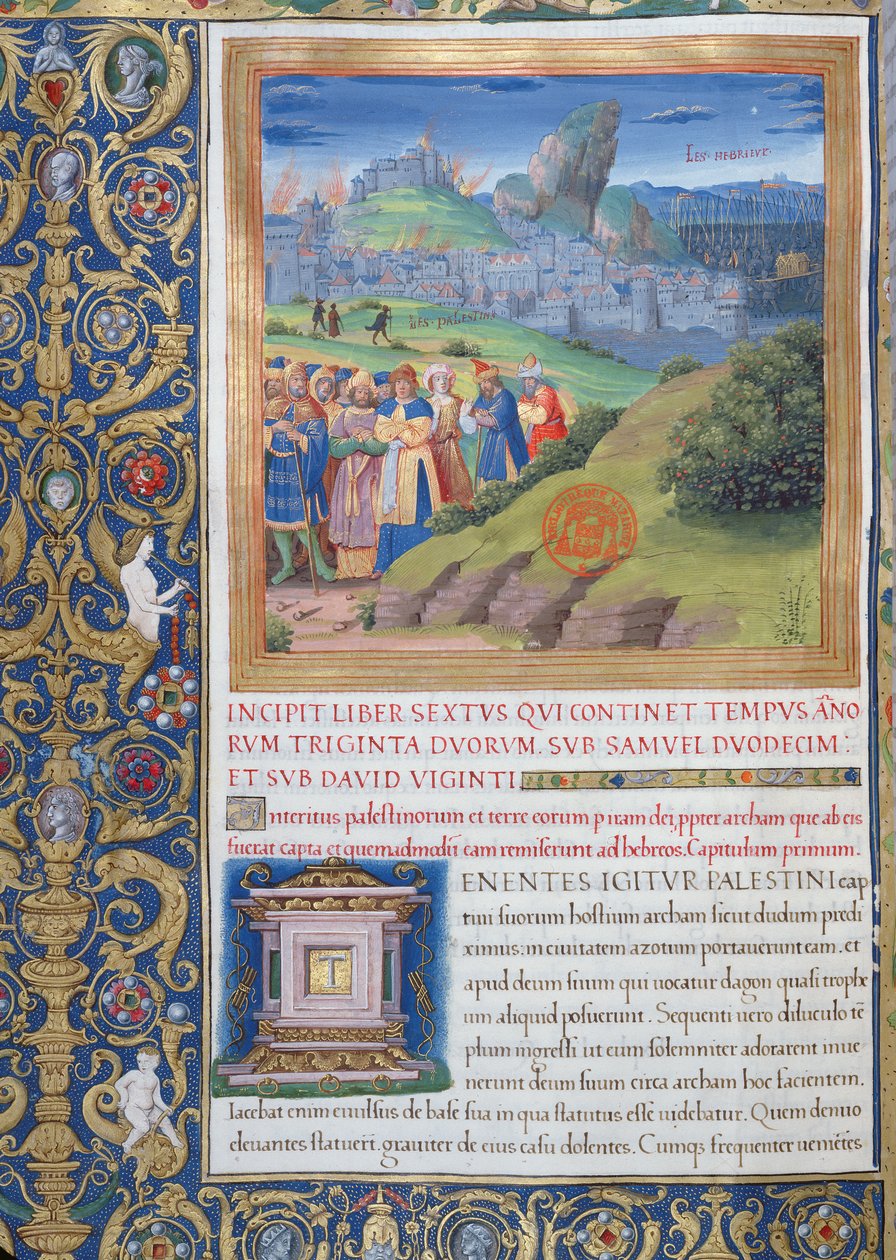 LES HEBRIEVX
LES PALESTINS
BIBLIOTHEQUE MAZARINE
INCIPIT LIBER SEXTVS QVI CONTINET TEMPVS AÑO
RVM TRIGINTA DVORVM. SVB SAMVEL DVODECIM.
ET SVB DAVID VIGINTI
Interitus palestinorum et terre eorum p iram dei, ppter archam que ab eis
fuerat capta et quemadmodū eam remiserunt ad hebreos. Capitulum primum.
TENENTES IGITVR PALESTINI cap
tiui suorum hostium archam sicut dudum predi
ximus: in ciuitatem azotum portauerunt eam. et
apud deum suum qui uocatur dagon quasi trophe
um aliquid posuerunt. Sequenti uero diluculo tē
plum ingressi ut eum solemniter adorarent inue
nerunt deum suum circa archam hoc facientem.
Iacebat enim euulsus de base sua in qua statutus esse uidebatur. Quem denuo
eleuantes statuerūt. grauiter de eius casu dolentes. Cumqꝫ frequenter ueniētes